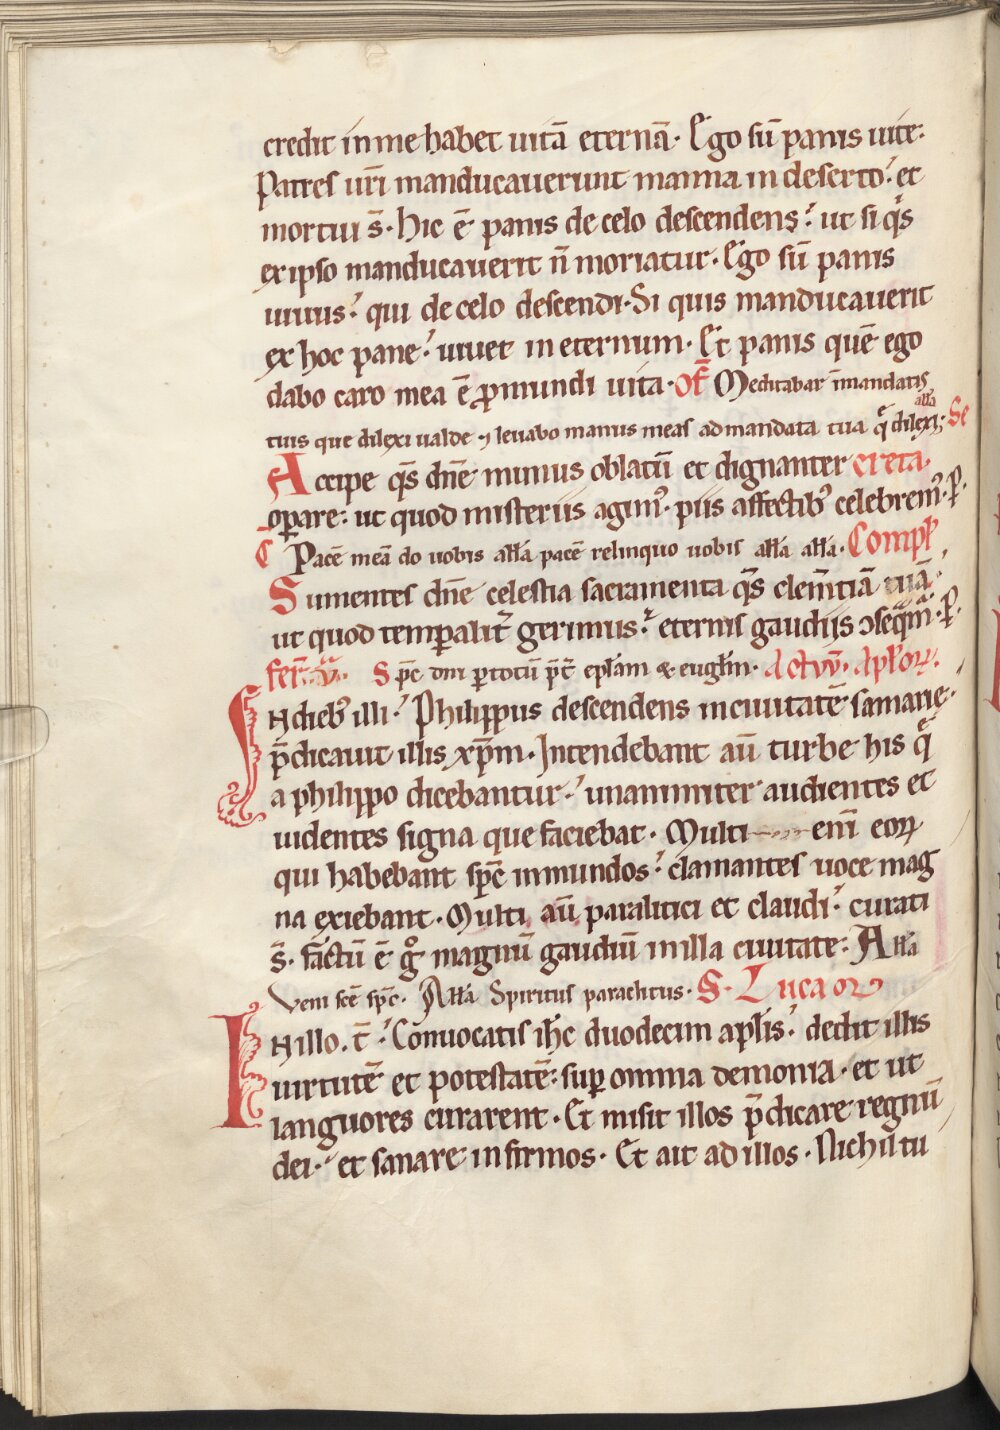 credit in me habet uitā eternā. Ego sū panis uite.
Patres ur̄i manducauerunt manna in deserto. et
mortui s̄. Hic ē panis de celo descendens. ut si qͥs
ex ipso manducauerit n̄ moriatur. Ego sū panis
uiuus. qui de celo descendi. Si quis manducauerit
ex hoc pane. uiuet in eternum. Et panis quē ego
dabo caro mea ē ꝓ mundi uita. Of̄ Meditabar ī mandatis
tuis que dilexi ualde ⁊ leuabo manus meas ad mandata tua q̄ dilexi; all̄a Se
Accipe qs̄ dn̄e munus oblatū et dignanter creta.
oꝑare: ut quod misteriis agimꝰ. piis affectibꝰ celebremꝰ. ꝑ.
C̄ Pacē meā do uobis all̄a pacē relinquo uobis all̄a all̄a. Compl̄
Sumentes dn̄e celestia sacramenta qs̄ clem̄tiā tuā.
ut quod temꝑalit̄ gerimus. eternis gaudiis ↄseqͣm̄. ꝑ.
fer̄. v. Sp̄c dn̄i ꝑ totū p̄t̄ ep̄lam & eugl̄m. Actuū. Apl̄oꝝ.
In diebꝰ illi. Philippus descendens in ciuitatē samarie.
p̄dicauit illis xp̄m. Intendebant aū turbe his q̄
a philippo dicebantur. unanimiter audientes et
uidentes signa que faciebat. Multi enī eoꝝ
qui habebant sp̄c inmundos. clamantes uoce mag
na exiebant. Multi aū paralitici et claudi. curati
s̄. factū ē gͦ magnū gaudiū in illa ciuitate. All̄a
Veni sc̄e sp̄c. All̄a Spiritus paraclitus. S. Lucā
In illo. t̄. Conuocatis ih̄c duodecim apl̄is. dedit illis
uirtutē et potestatē. suꝑ omnia demonia. et ut
languores curarent. Et misit illos p̄dicare regnū
dei. et sanare infirmos. Et ait ad illos. Nichil tu